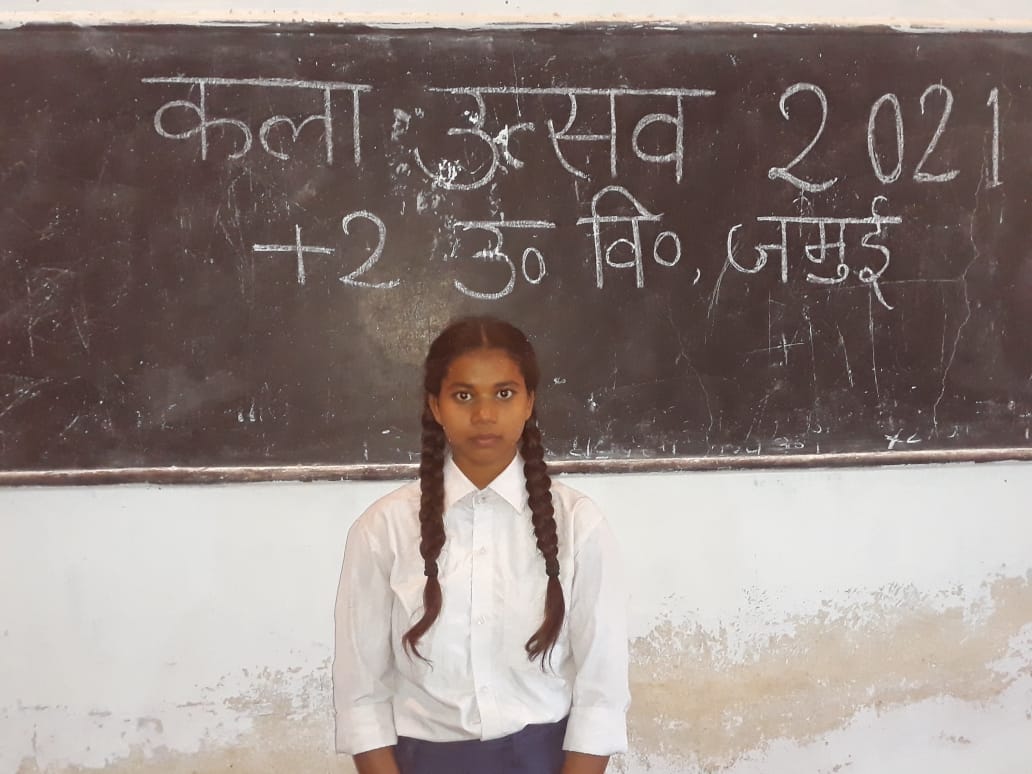 कला उत्सव 2021
+2 उ० वि०, जमुई